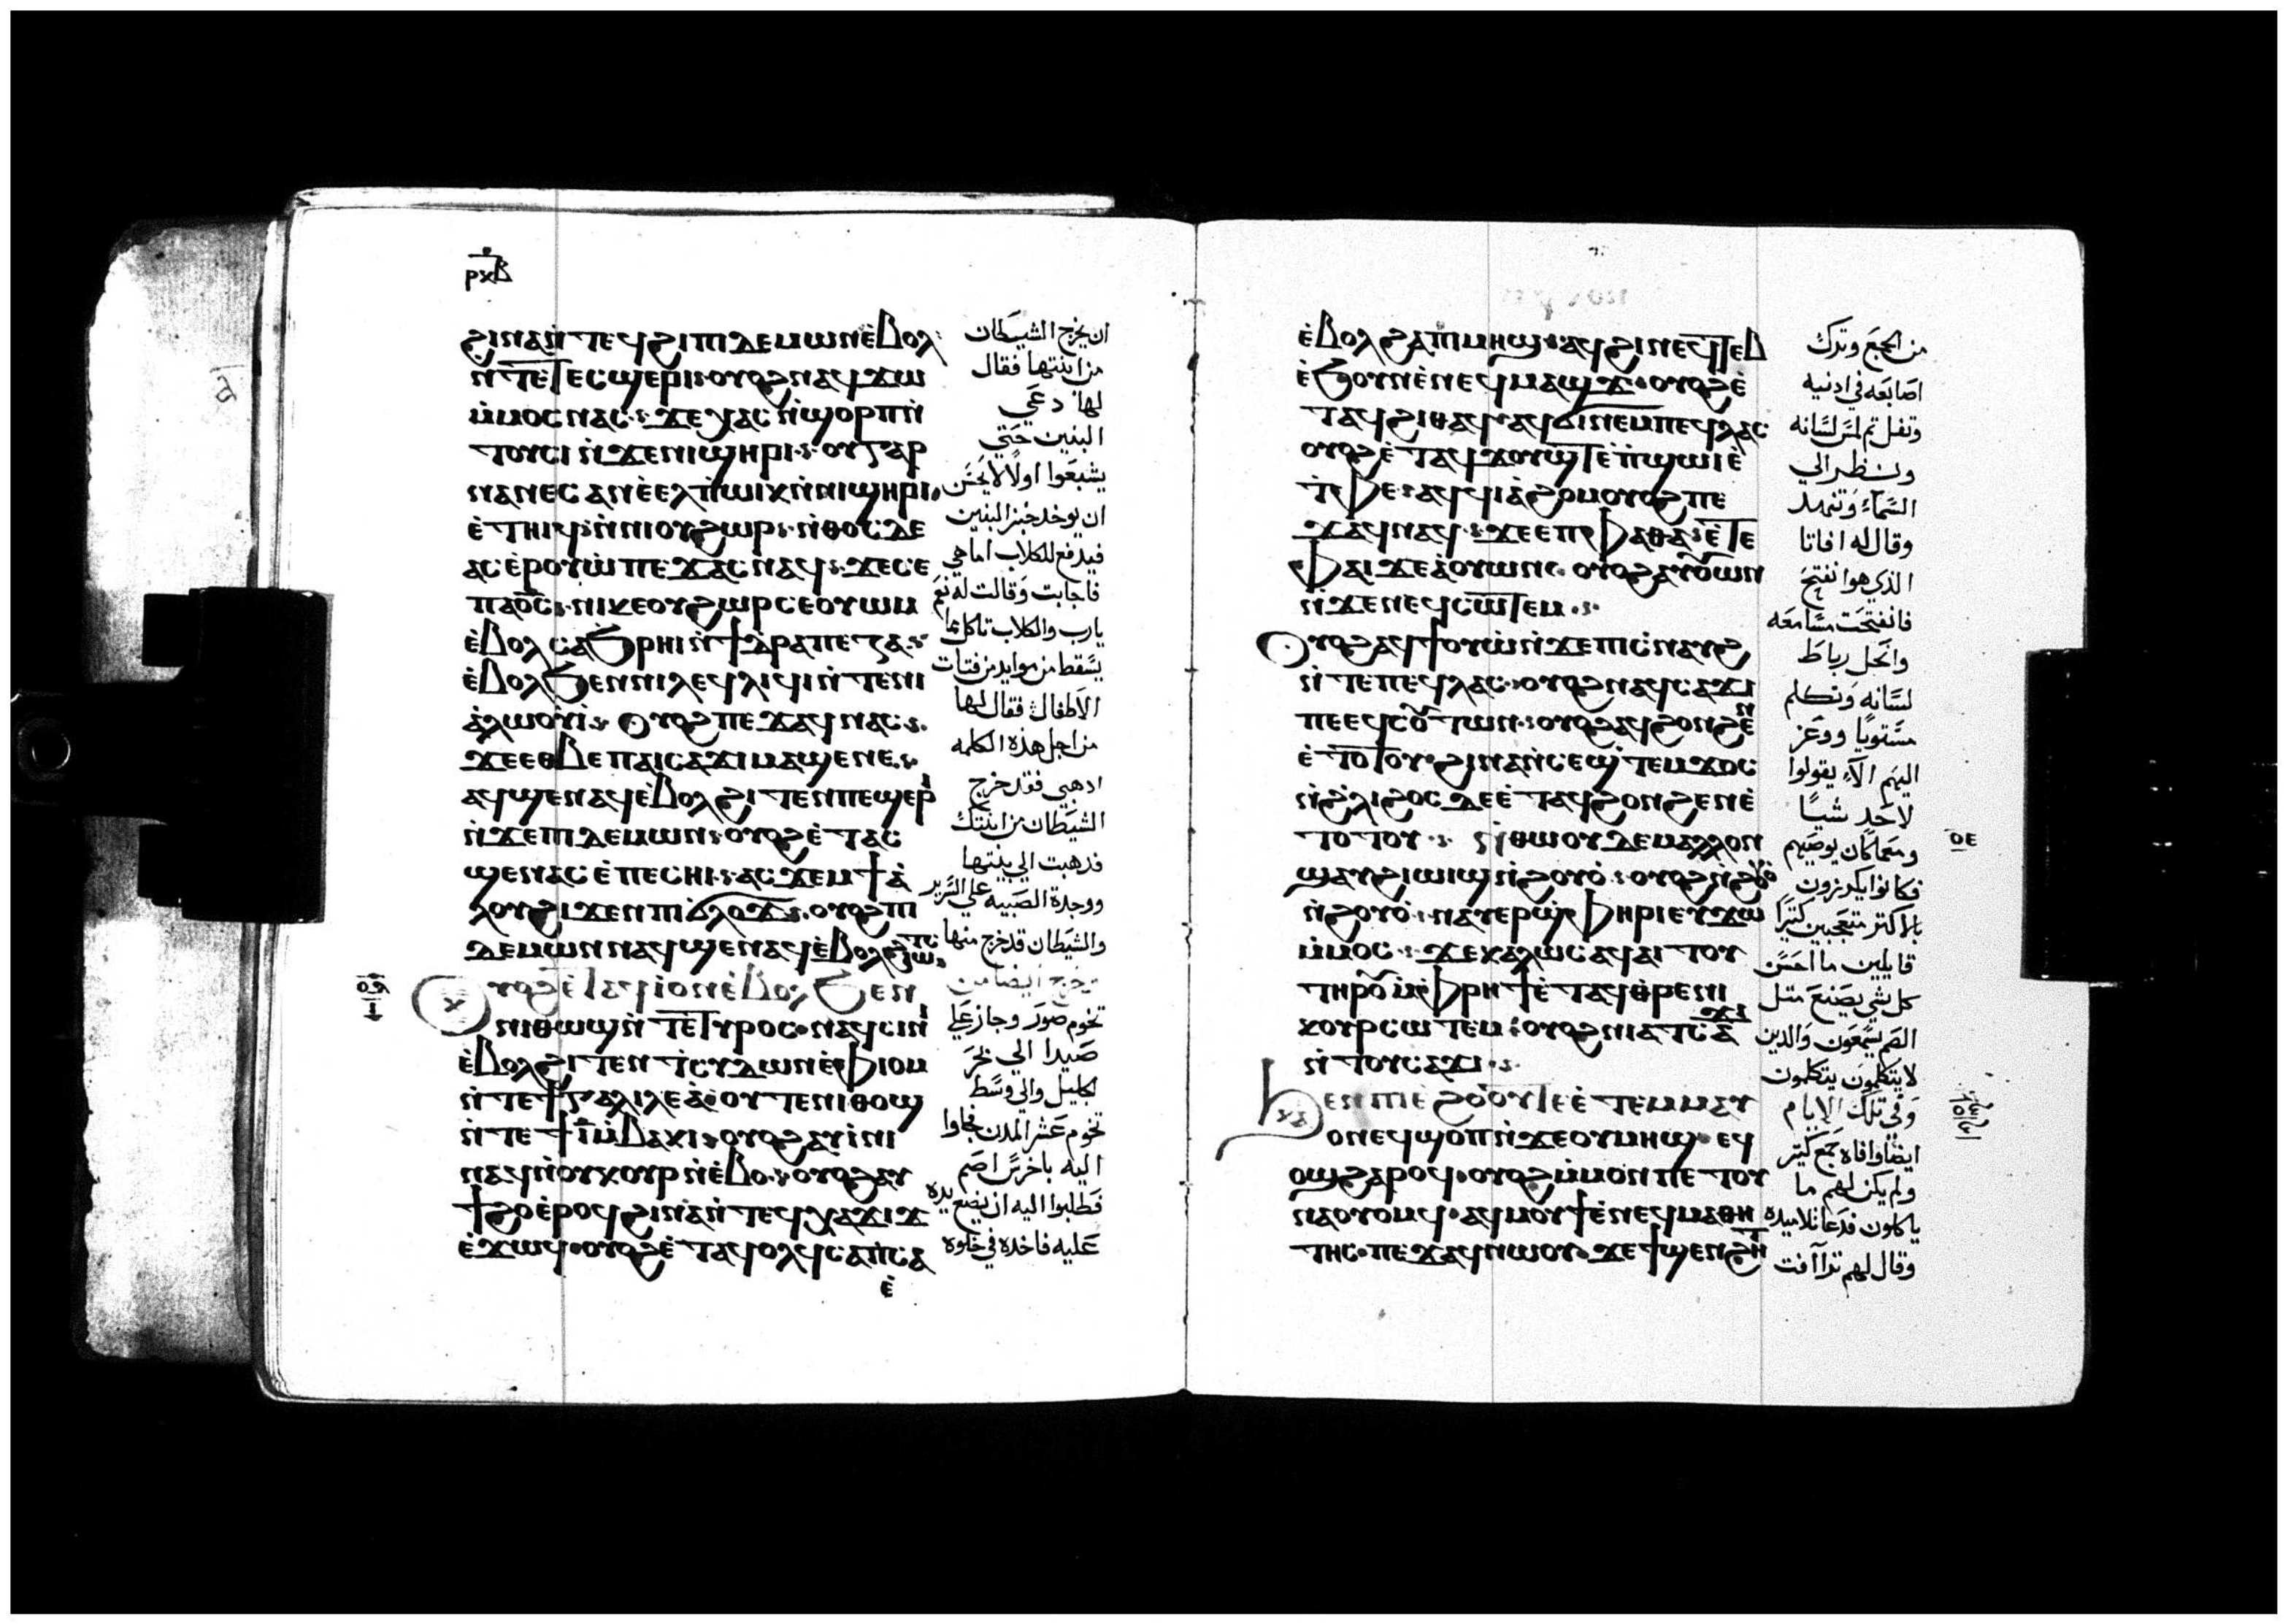 ⲣⲕⲃ
ϩⲓⲛⲁ ⲛ̀ⲧⲉϥϩⲓ ⲡⲓⲇⲉⲙⲱⲛ ⲉ̀ⲃⲟⲗ
ⲛ̀ⲧⲉⲧⲉⲥϣⲉⲣⲓ ⲟⲩⲟϩ ⲛⲁϥϫⲱ
ⲙ̀ⲙⲟⲥ ⲛⲁⲥ ϫⲉ ⲭⲁⲥ ⲛ̀ϣⲟⲣⲡ ⲛ̀
ⲧⲟⲩⲥⲓ ⲛ̀ϫⲉ ⲛⲓϣⲏⲣⲓ ⲟⲩ ⲅⲁⲣ
ⲛⲁⲛⲉⲥ ⲁⲛ ⲉ̀ⲉⲗ ⲡ̀ⲱⲓⲕ ⲛ̀ⲛⲓϣⲏⲣⲓ
ⲉ̀ⲧⲏⲓϥ ⲛ̀ⲛⲓⲟⲩϩⲱⲣ ⲛ̀ⲑⲟⲥ ⲇⲉ
ⲁⲥⲉ̀ⲣⲟⲩⲱ̀ ⲡⲉϫⲁⲥ ⲛⲁϥ ϫⲉ ⲥⲉ
ⲡⲁϭⲥ ⲛⲓⲕⲉⲟⲩϩⲱⲣ ⲥⲉⲟⲩⲱⲙ
ⲉ̀ⲃⲟⲗ ⲥⲁϧⲣⲏⲓ ⲛ̀ϯⲧⲣⲁⲡⲉⲍⲁ
ⲉ̀ⲃⲟⲗϧⲉⲛ ⲛⲓⲗⲉϥⲗⲓϥⲓ ⲛ̀ⲧⲉ ⲛⲓ
ⲁ̀ⲗⲱⲟⲩⲓ̀ ⲟⲩⲟϩ ⲡⲉϫⲁϥ ⲛⲁⲥ
ϫⲉ ⲉⲑⲃⲉ ⲡⲁⲓⲥⲁϫⲓ ⲙⲁϣⲉ ⲛⲉ
ⲁϥϣⲉⲛⲁϥ ⲉ̀ⲃⲟⲗϩⲓⲧⲉⲛ ⲡⲉϣⲉⲣⲓ
ⲛ̀ϫⲉ ⲡⲓⲇⲉⲙⲱⲛ ⲟⲩⲟϩ ⲉ̀ⲧⲁⲥ
ϣⲉⲛⲁⲥ ⲉ̀ⲡⲉⲥⲏⲓ ⲁⲥϫⲉⲙ ϯⲁ̀
ⲗⲟⲩ ϩⲓϫⲉⲛ ⲡⲓϭⲗⲟϫ ⲟⲩⲟϩ ⲡⲓ
ⲇⲉⲙⲱⲛ ⲛⲁϥϣⲉⲛⲁϥ ⲉ̀ⲃⲟⲗϩⲓⲱⲧⲥ
ⲟⲩⲟϩ ⲉ̀ⲧⲁϥⲓ̀ ⲟⲛ ⲉ̀ⲃⲟⲗϧⲉⲛ
ⲛⲓⲑⲱϣ ⲛ̀ⲧⲉ ⲧⲩⲣⲟⲥ ⲛⲁϥⲥⲓⲛⲓ
ⲉ̀ⲃⲟⲗϩⲓⲧⲉⲛ ⲧ̀ⲥⲩⲇⲱⲛ ⲉ̀ⲫⲓⲟⲙ
ⲛ̀ⲧⲉ ϯⲅⲁⲗⲓⲗⲉⲁ̀ ⲟⲩⲧⲉ ⲛⲓⲑⲟϣ
ⲛ̀ⲧⲉ ϯⲓ̅ ⲙ̀ⲃⲁⲕⲓ ⲟⲩⲟϩ ⲁⲩⲓ̀ⲛⲓ
ⲛⲁϥ ⲛ̀ⲟⲩⲕⲟⲩⲣ ⲛ̀ⲉⲃⲟ ⲟⲩⲟϩ ⲁⲩ
ϯϩⲟ ⲉ̀ⲣⲟϥ ϩⲓⲛⲁ ⲛ̀ⲧⲉϥⲭⲁ ϫⲓϫ
ⲉ̀ϫⲱϥ ⲟⲩⲟϩ ⲉ̀ⲧⲁϥⲟⲗϥ ⲥⲁⲡ̀ⲥⲁ
ⲉ̀
ان يخرج الشيطان
من ابنتها فقال
لها دعي
البنين حتي
يشبعوا اولا لا يحسن
ان يوخد خبز البنين
فيدفع للكلاب اما هي
فاجابت وقالت له نعم
يارب والكلاب تاكل مما
يسقط من موايد من فتات
الاطفال فقال لها
من اجل هذه الكلمه
ادهبي فقد خرج
الشيطان من ابنتك
فدهبت الي بيتها
ووجدة الصبيه علي السرير
والشيطان قد خرج منها
خرج ايضا من
تخوم صور وجاز علي
صيدا الي بحر
الجليل والي وسط
تخوم عشر المدن فجاوا
اليه باخرس اصم
فطلبوا اليه ان يضع يده
عليه فاخده في خلوه
ⲉ̀ⲃⲟⲗϩⲁ ⲡⲓⲙⲏϣ ⲁϥϩⲓ ⲛⲉϥⲧⲏⲃ
ⲉ̀ϧⲟⲩⲛ ⲉ̀ⲛⲉϥⲙⲁϣϫ ⲟⲩⲟϩ ⲉ̀
ⲧⲁϥϩⲓⲑⲁϥ ⲁϥϭⲓ ⲛⲉⲙ ⲡⲉϥⲗⲁⲥ
ⲟⲩⲟϩ ⲉ̀ⲧⲁϥϫⲟⲩϣⲧ ⲉ̀ⲡ̀ϣⲱⲓ ⲉ̀
ⲧ̀ⲫⲉ ⲁϥϥⲓⲁ̀ϩⲟⲙ ⲟⲩⲟϩ ⲡⲉ
ϫⲁϥ ⲛⲁϥ ϫⲉ ⲉⲡⲫⲁⲑⲁ ⲉ̀ⲧⲉ
ⲫⲁⲓ ⲡⲉ ⲁ̀ⲟⲩⲱⲛ ⲟⲩⲟϩ ⲁⲩⲟⲩⲱⲛ
ⲛ̀ϫⲉ ⲛⲉϥⲥⲱⲧⲉⲙ
ⲟⲩⲟϩ ⲁϥϯⲟⲩⲱ̀ ⲛ̀ϫⲉ ⲡⲓⲥ̀ⲛⲁⲩϩ
ⲛ̀ⲧⲉ ⲡⲉϥⲗⲁⲥ ⲟⲩⲟϩ ⲛⲁϥⲥⲁϫⲓ
ⲡⲉ ⲉϥⲥⲟⲩⲧⲱⲛ ⲟⲩⲟϩ ⲁϥϩⲟⲛϩⲉⲛ
ⲉ̀ⲧⲟⲧⲟⲩ ϩⲓⲛⲁ ⲛ̀ⲥⲉϣ̀ⲧⲉⲙϫⲟⲥ
ⲛ̀ϩ̀ⲗⲓ ϩⲟⲥ ⲇⲉ ⲉ̀ⲧⲁϥϩⲟⲛϩⲉⲛ ⲉ̀
ⲧⲟⲧⲟⲩ ⲛ̀ⲑⲱⲟⲩ ⲇⲉ ⲙⲁⲗⲗⲟⲛ
ϣⲁⲩϩⲓⲱⲓϣ ⲛ̀ϩⲟⲩⲟ̀ ⲟⲩⲟϩ ⲛ̀ϩⲟⲩⲟ̀
ⲛ̀ϩⲟⲩⲟ̀ ⲛⲁⲩⲉⲣϣ̀ⲫⲏⲣⲓ ⲉⲩϫⲱ
ⲙ̀ⲙⲟⲥ ϫⲉ ⲕⲁⲗⲱⲥ ⲁϥⲁⲓⲧⲟⲩ
ⲧⲏⲣⲟⲩ ⲙ̀ⲫⲣⲏϯ ⲉ̀ⲧⲁϥⲑ̀ⲣⲉ ⲛⲓ
ⲕⲟⲩⲣ ⲥⲱⲧⲉⲙ ⲟⲩⲟϩ ⲛⲓⲁⲧⲥⲁϫⲓ
ⲛ̀ⲧⲟⲩⲥⲁϫⲓ
ϧⲉⲛ ⲡⲓⲉ̀ϩⲟⲟⲩ ⲇⲉ ⲉ̀ⲧⲉⲙⲙⲁⲩ
ⲟⲛ ⲉϥϣⲟⲡ ⲛ̀ϫⲉ ⲟⲩⲙⲏϣ ⲉϥ
ⲟϣ ϩⲁⲣⲟϥ ⲟⲩⲟϩ ⲙ̀ⲙⲟⲛ ⲡⲉⲧⲟⲩ
ⲛⲁⲟⲩⲟⲙϥ ⲁϥⲙⲟⲩϯ ⲉ̀ⲛⲉϥⲙⲁⲑⲏ
ⲧⲏⲥ ⲡⲉϫⲁϥ ⲛⲱⲟⲩ ϫⲉ ϯϣⲉⲛϩⲏⲧ
من الجمع وترك
اصابعه في ادنيه
وتفل تم لمس لسانه
ونظر الي
السماء وتنهد
وقال له افاتا
الذي هوا تفتح
فانفتحت مسامعه
وانحل رباط
لسانه وتكلم
مستويا ووعز
اليهم الا يقولوا
لاحد شيا
ومعما كان يوصيهم
فكانوا يكرزون
بالاكتر متعجبين كتيرا
قايلين ما احسن
كل شي يصنع متل
الصم يسمعون والدين
لا يتكلمون يتكلمون
وفي تلك الايام
ايضا وافاه جمع كتير
ولم يكن لهم ما
ياكلون فدعا تلاميده
وقال لهم تراآفت
ⲟⲉ